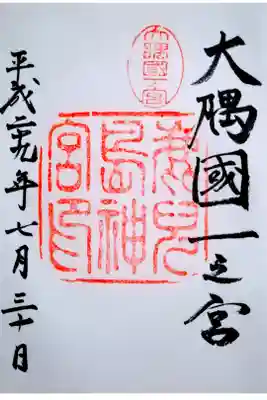 大隅國一之宮
大隅國一宮
鹿児島神宮印
平成二十九年七月三十日